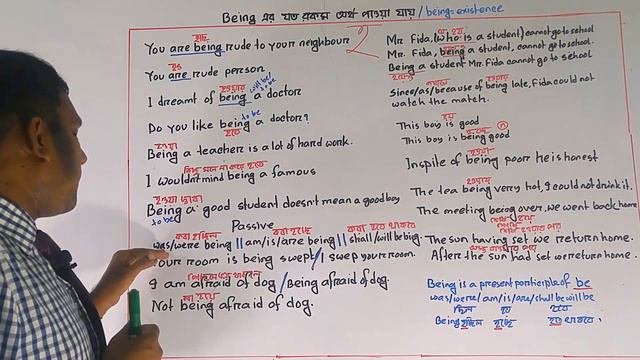 Being এর যত রকম অর্থ পাওয়া যায় / being=existence
You are being rude to your neighbour
You are rude person.
will be/
হওয়ার to be
I dreamt of being a doctor
to be
Do you like being a doctor?
হতে
হওয়া
Being a teacher is a lot of hard work.
I wouldn't mind being a famous
হওয়া দ্বারা
Being a good student doesn't mean a good boy
to be
Passive
করা হচ্ছিল করা হচ্ছে করা হতে থাকবে
was/were being || am/is/are being || shall/will be being.
Your room is being swept/I swept your room.
I am afraid of dog / Being afraid of dog.
Not being afraid of dog.
Mr. Fida, (who is a student) cannot go to school.
Mr. Fida, being a student, cannot go to school.
Being a student Mr. Fida cannot go to school
Since/as/because of being late, Fida could not
watch the match.
This boy is good
This boy is being good
হওয়া
Inspite of being poor he is honest
হওয়ায়
The tea being very hot, I could not drink it.
The meeting being over, we went back home
The sun having set we return home.
After the sun had set we return home.
Being is a present participle of be
was/were/am/is/are/shall be will be
Being হচ্ছিল হচ্ছে হতে থাকবে.